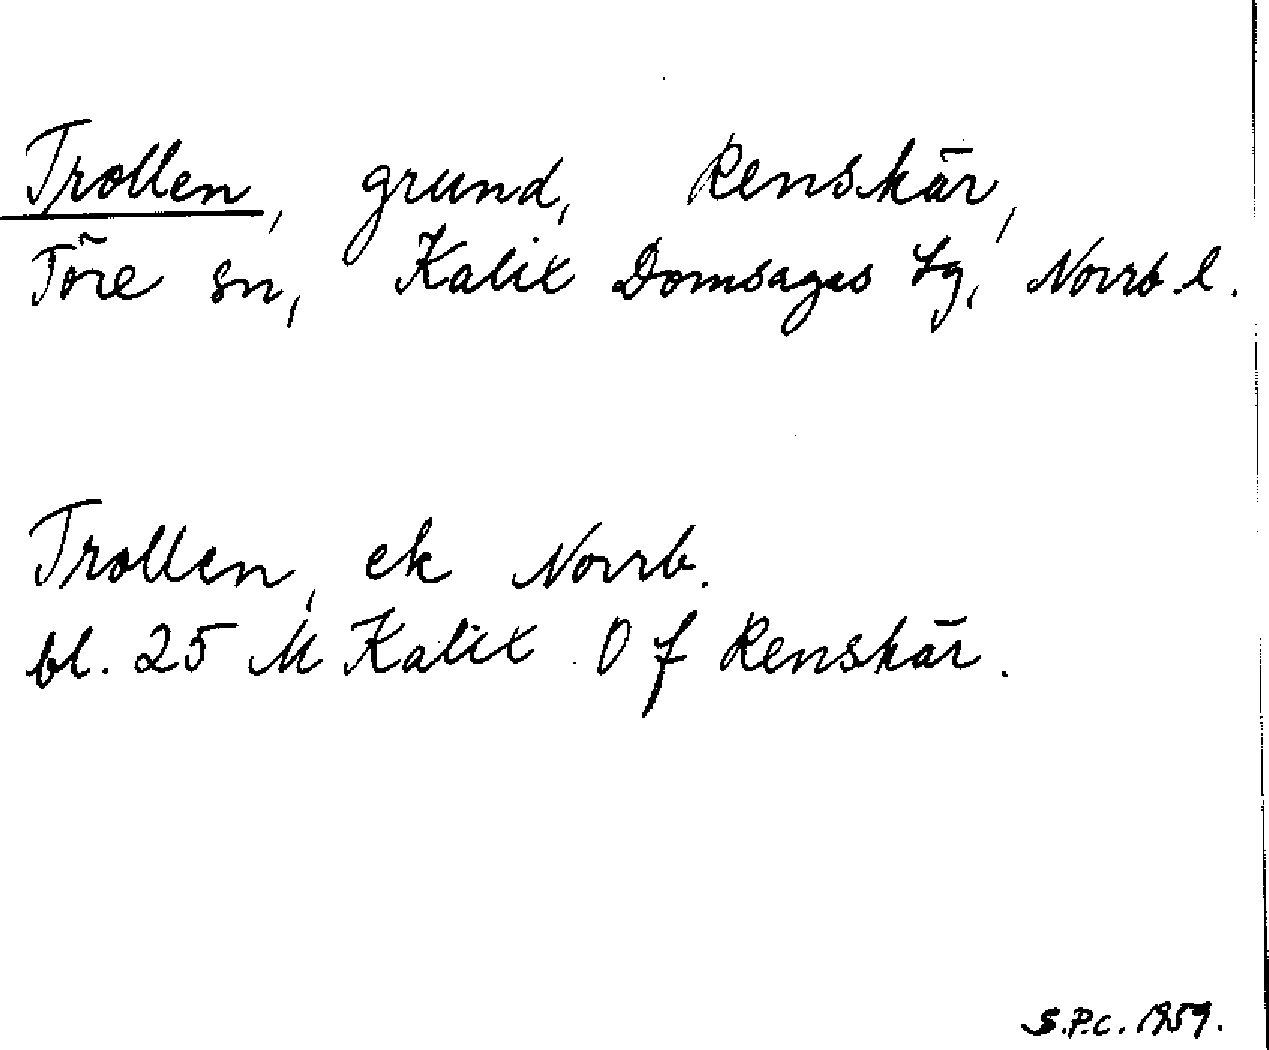 Trollen, grund, Renskär,
Töre sn, Kalix Domsagas tg, Norrb. l.
Trollen, ek Norrb.
bl. 25 M Kalix O f Renskär.
S.P.C. 1959.